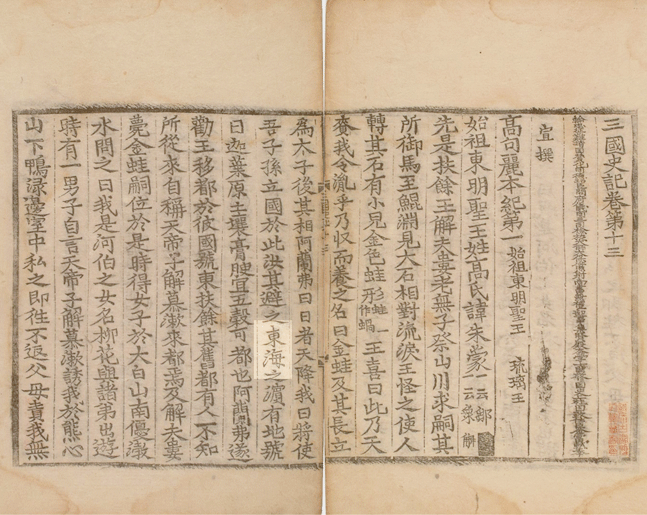 三國史記卷第十三
宣撰
高句麗本紀第一 始祖東明聖王 琉璃王
始祖東明聖王姓高氏諱朱蒙一云鄒一云象解
先是扶餘王解夫婁老無子祭山川求嗣其
所御馬至鯤淵見大石相對流淚王怪之使人
轉其石有小兒金色蛙形蛙一作蝸王喜曰此乃天
賚我令胤乎乃收而養之名曰金蛙及其長立
為太子後其相阿蘭弗曰日者天降我曰將使
吾子孫立國於此汝其避之東海之濱有地號
曰迦葉原土壤膏腴宜五穀可都也阿蘭弗遂
勸王移都於彼國號東扶餘其舊都有人不知
所從來自稱天帝子解慕漱來都焉及解夫婁
薨金蛙嗣位於是時得女子於大白山南優渤
水問之曰我是河伯之女名柳花與諸弟出遊
時有一男子自言天帝子解慕漱誘我於熊心
山下鴨淥邊室中私之即往不返父母責我無